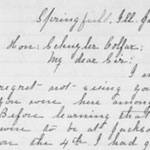 Springfield, Ill,
Hon: Schuyler Colfax,
My dear Sir:
regret not seeing you
you were here among
Before learning that
were to be at Jackson
on the 4th I had g